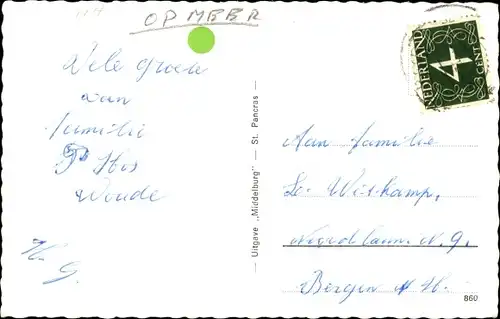 OPMEER
Vele groeten
van
familie
P Hos
Woude
Uitgave „Middelburg" — St. Pancras —
NEDERLAND
4
CENT
Aan familie
Wit kamp,
N. 9.
Bergen N H.
860